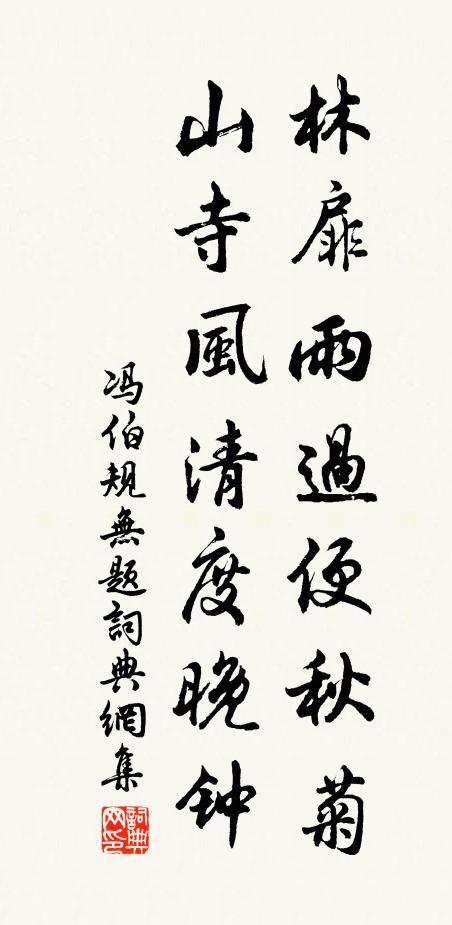 林扉雨過便秋菊
山寺風清度晚钟
冯伯規無题詞典網集
詞典网印